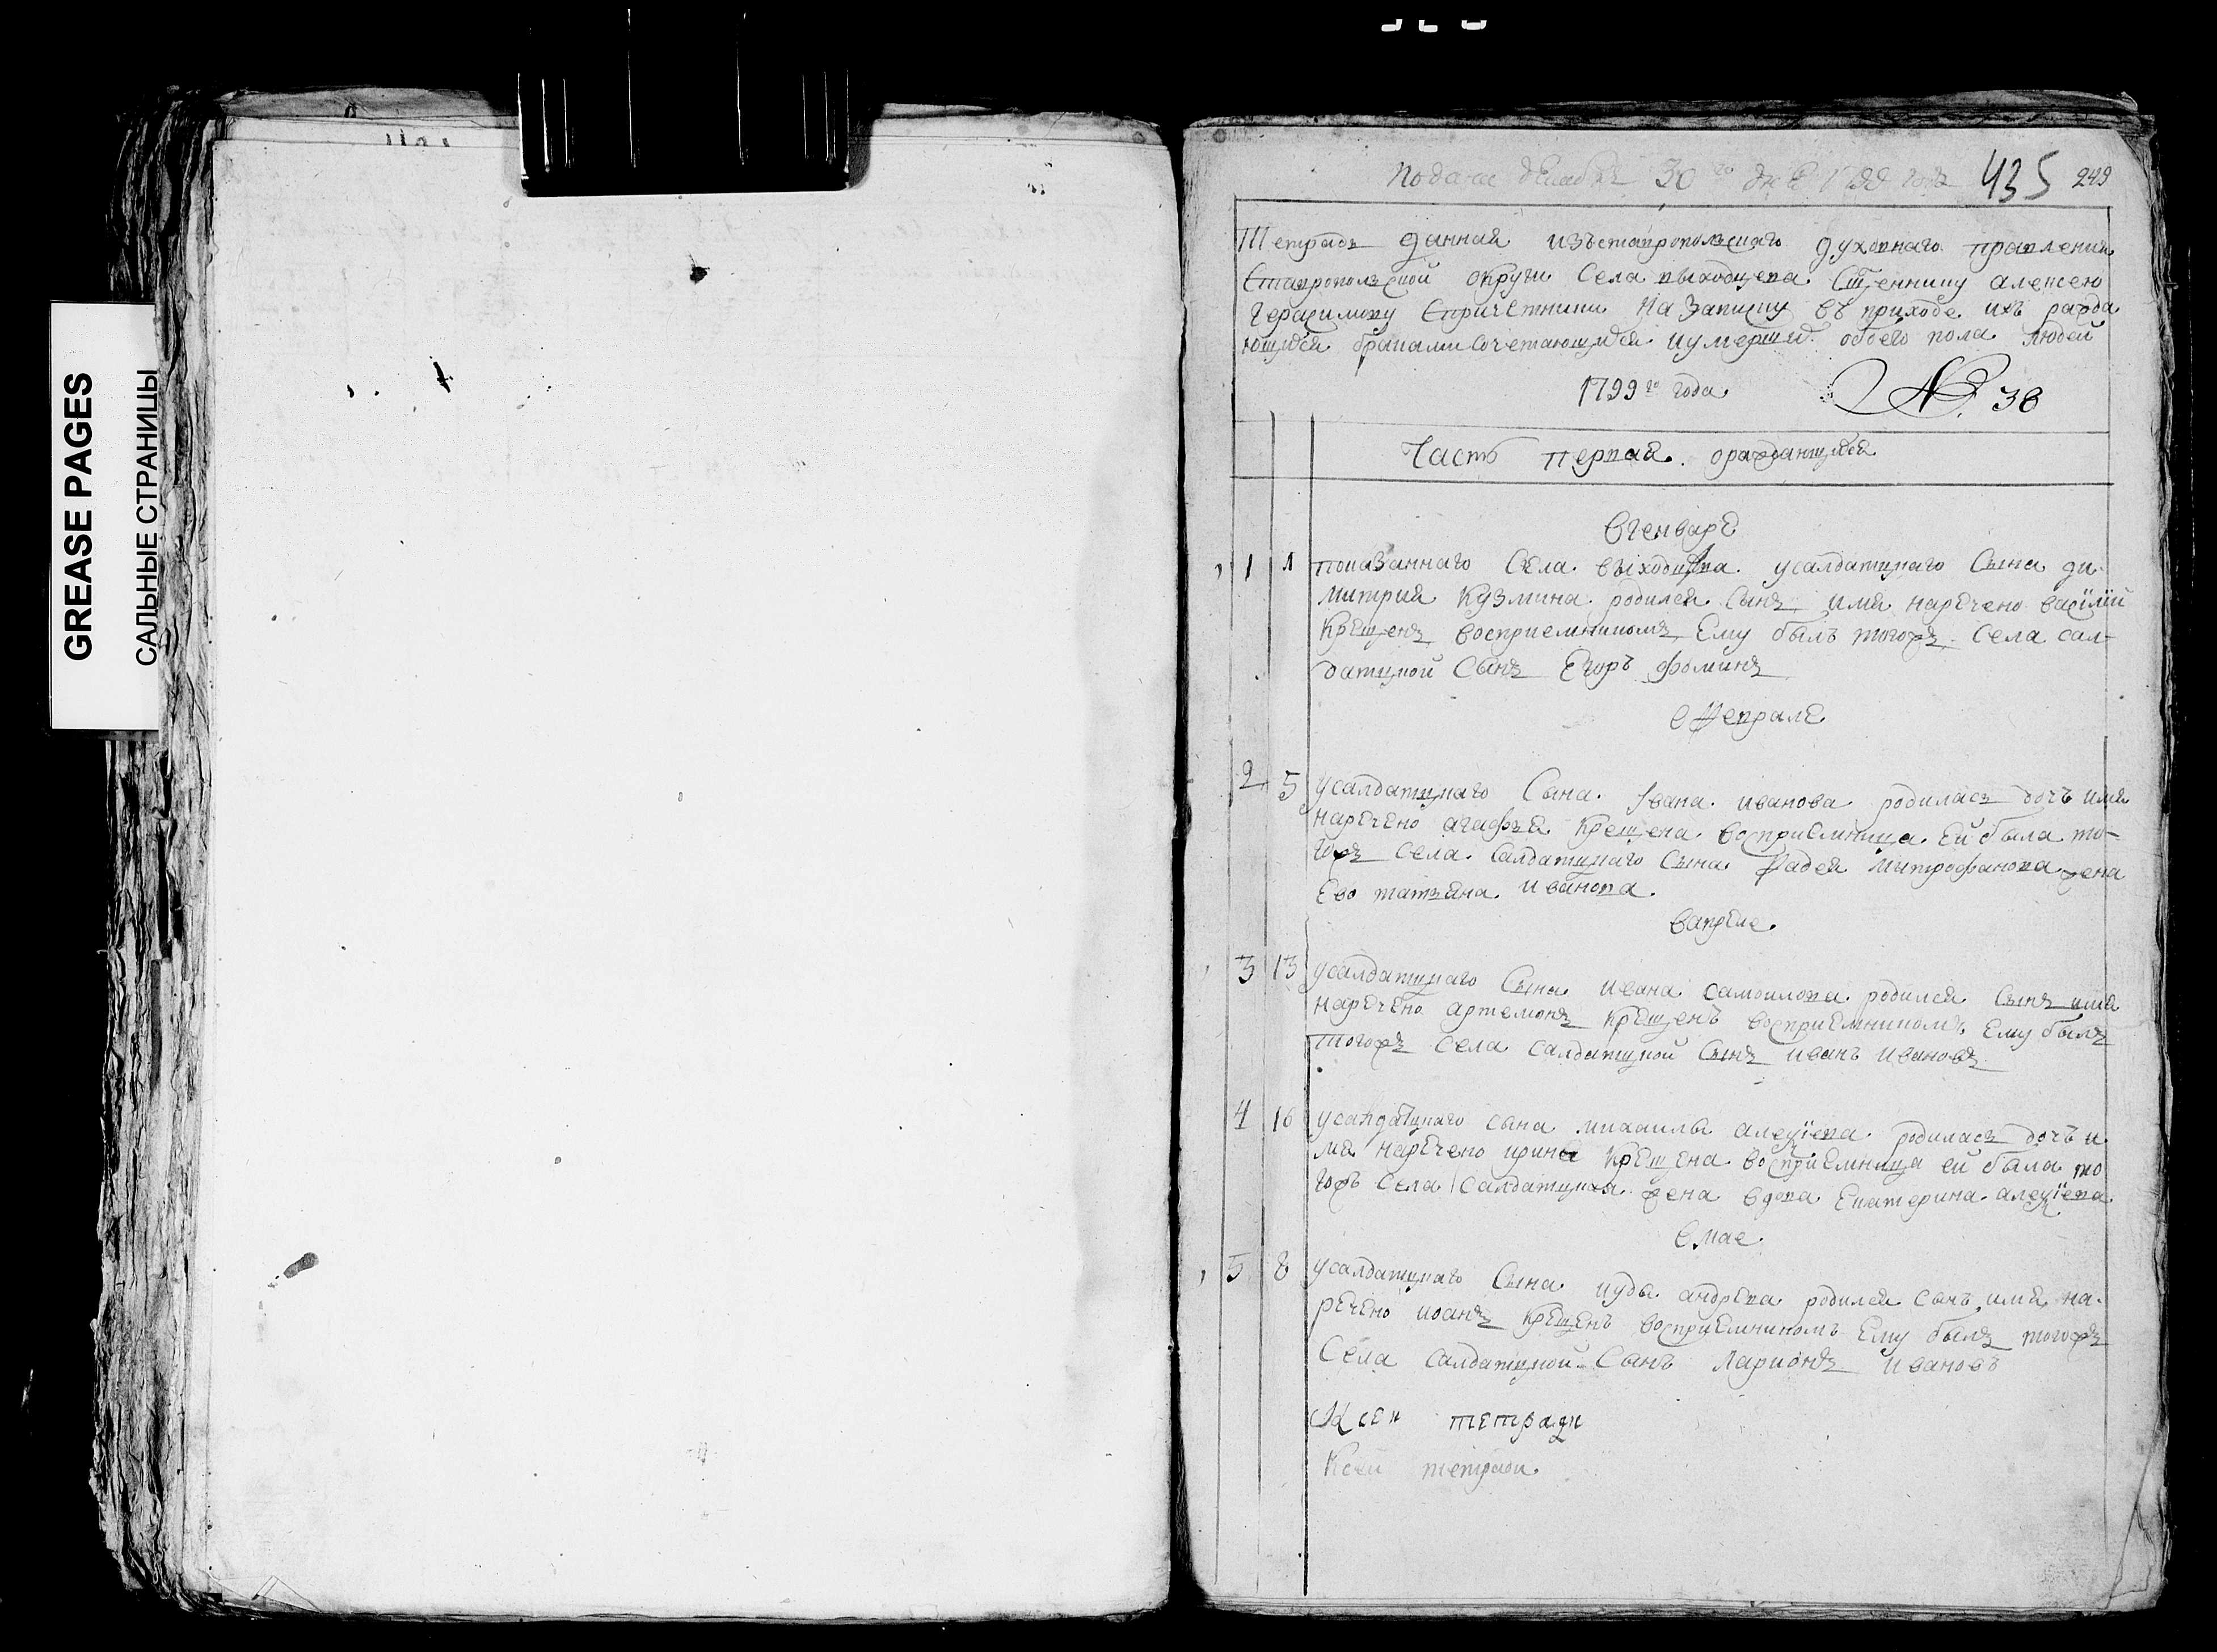 GREASE PAGES
САЛЬНЫЕ СТРАНИЦЫ
Подана декабря 30 го дня 1799 года 435 249
Тетрадь данная изъставропольскаго духовнаго правления
Ставропольской округи Села выходцева Сщеннику алексею
Герасимову Спричетники На Записку въ приходе ихъ ражда
ющихся браками сочетающихся иумерших обоего пола людей
1799 го года № 38
Часть первая ораждающихся
Вгенваре
1 1 показаннаго Села выходцева усалдатцкаго Сына ди
митрия Кузмина родился Сынъ имя наречено василий
Крещенъ восприемникомъ Ему былъ тогожъ Села сал-
датцкой Сынъ Егоръ фоминъ
вФеврале
2 5 усалдатцкаго Сына Iвана иванова родилась дочь имя
наречено агафья крещена восприемница ей была то-
гожъ Села Салдатцкаго Сына Фадея митрофанова жена
Ево татьяна иванова
вапреле
3 13 усалдатцкаго Сына ивана самоилова родился Сынъ имя
наречено артемонъ крещенъ восприемникомъ Ему былъ
тогожъ Села салдатцкой Сынъ иванъ ивановъ
4 16 усалдатцкаго сына михаилы алексiева родилась дочь и
мя наречено ирина крещена восприемница ей была то
гожъ Села Салдатцкая жена вдова Екатерина алексiева
вмае
5 8 усалдатцкаго Сына иуды андрева родился сынъ имя на
речено иоанъ крещенъ восприемникомъ Ему былъ тогожъ
Села салдатцкой Сынъ ларионъ ивановъ
К сеи тетради
Ксеи тетради